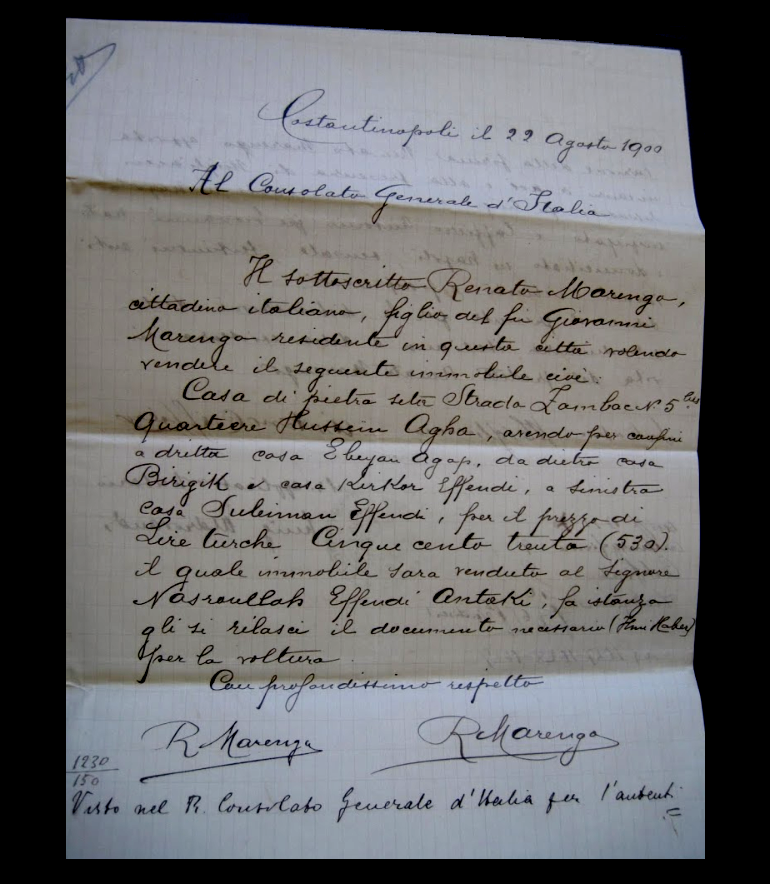 Costantinopoli il 22 Agosto 1900
Al Consolato Generale d'Italia
Il sottoscritto Renato Marengo,
cittadino italiano, figlio del fu Giovanni
Marengo residente in questa città volendo
vendere il seguente immobile cioè:
Casa di pietra sita Strada Zambac N. 5 bis
Quartiere Hussein Agha, avendo per confini
a dritta casa Ebeyan Agap, da dietro casa
Birigik e casa Kirkor Effendi, a sinistra
casa Suleiman Effendi, per il prezzo di
Lire turche Cinque cento trenta (530).
il quale immobile sara venduto al Signore
Nasroullah Effendi Antaki, fa istanza
gli si rilasci il documento necessario (Ilmi Haber)
per la voltura.
Con profondissimo rispetto
R Marengo R Marengo
1230
150
Visto nel R. Consolato Generale d'Italia per l'autenti=